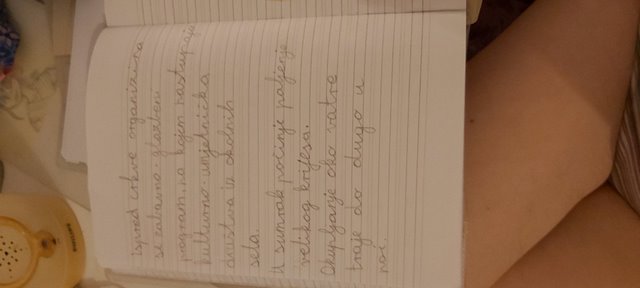 Ispred crkve organizira
se zabavno glazbeni
program na kojem nastupaju
kulturno-umjetnička
društva iz okolnih
sela.
U sumrak počinje paljenje
velikog krijesa.
Okupljanje oko vatre
traje do dugo u
noć.